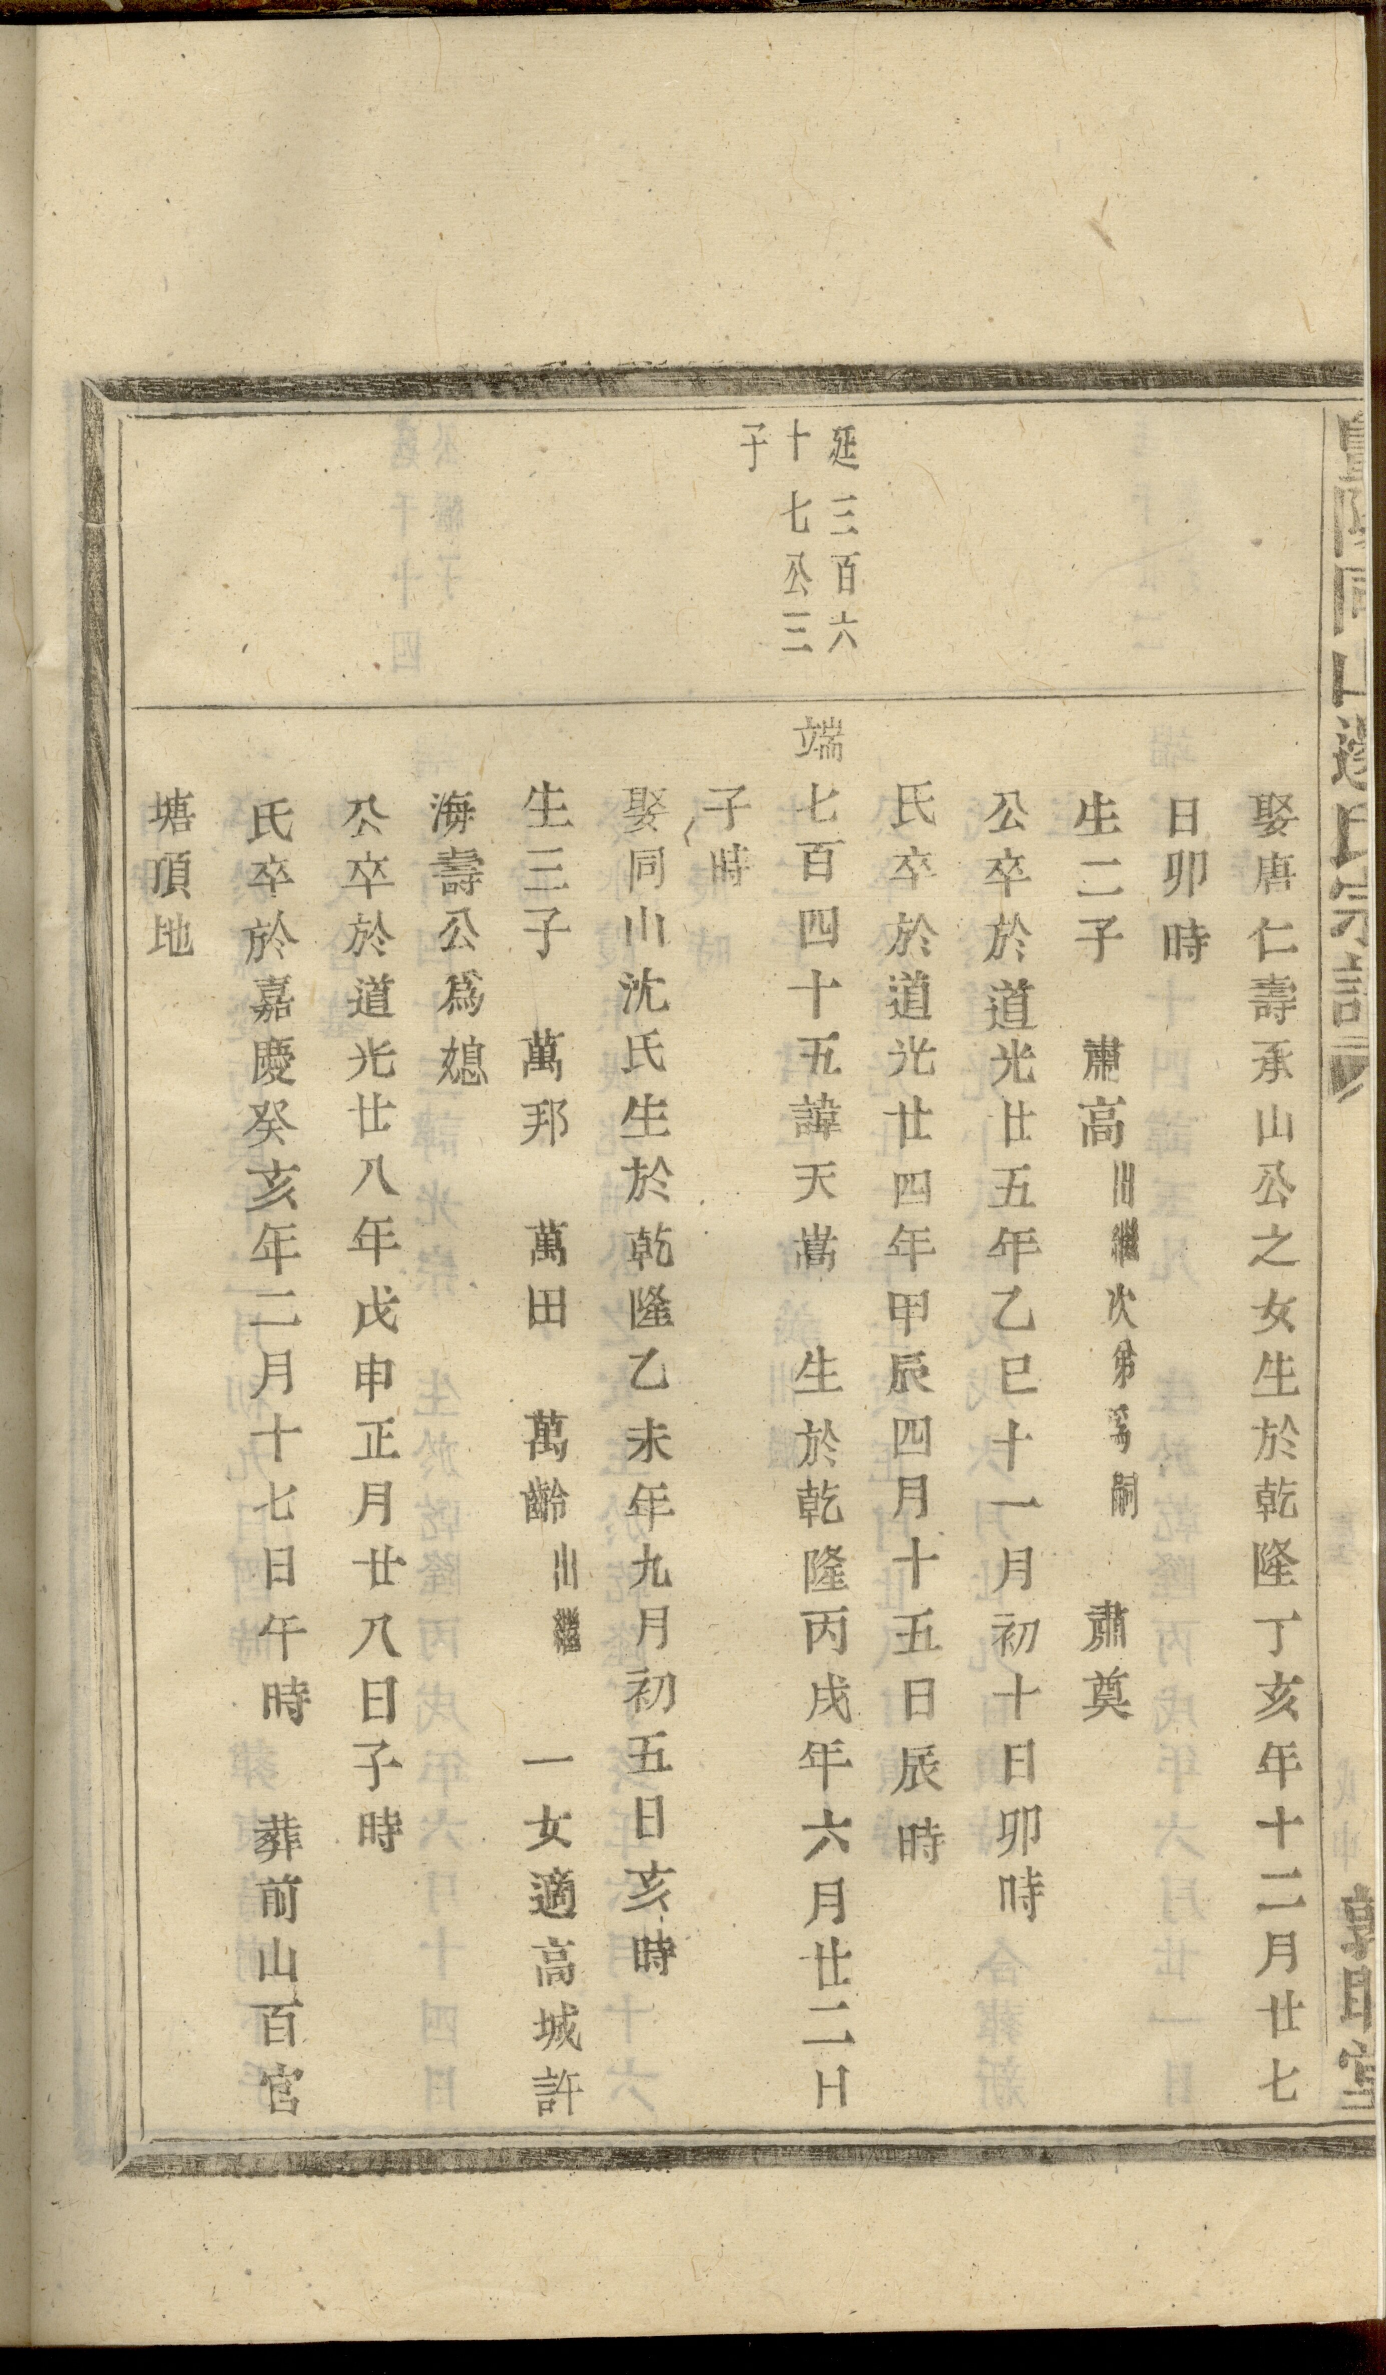 娶唐仁壽承山公之女生於乾隆丁亥年十二月廿七
日卯時
生二子　肅高出繼次弟爲嗣　肅奠
公卒於道光廿五年乙巳十一月初十日卯時
氏卒於道光廿四年甲辰四月十五日辰時
延三百六
十七公三
子
端七百四十五諱天嵩　生於乾隆丙戌年六月廿二日
子時
娶同山沈氏生於乾隆乙未年九月初五日亥時
生三子　萬邦　萬田　萬齡出繼　一女適高城許
海壽公爲媳
公卒於道光廿八年戊申正月廿八日子時
氏卒於嘉慶癸亥年二月十七日午時　葬前山百官
塘頂地